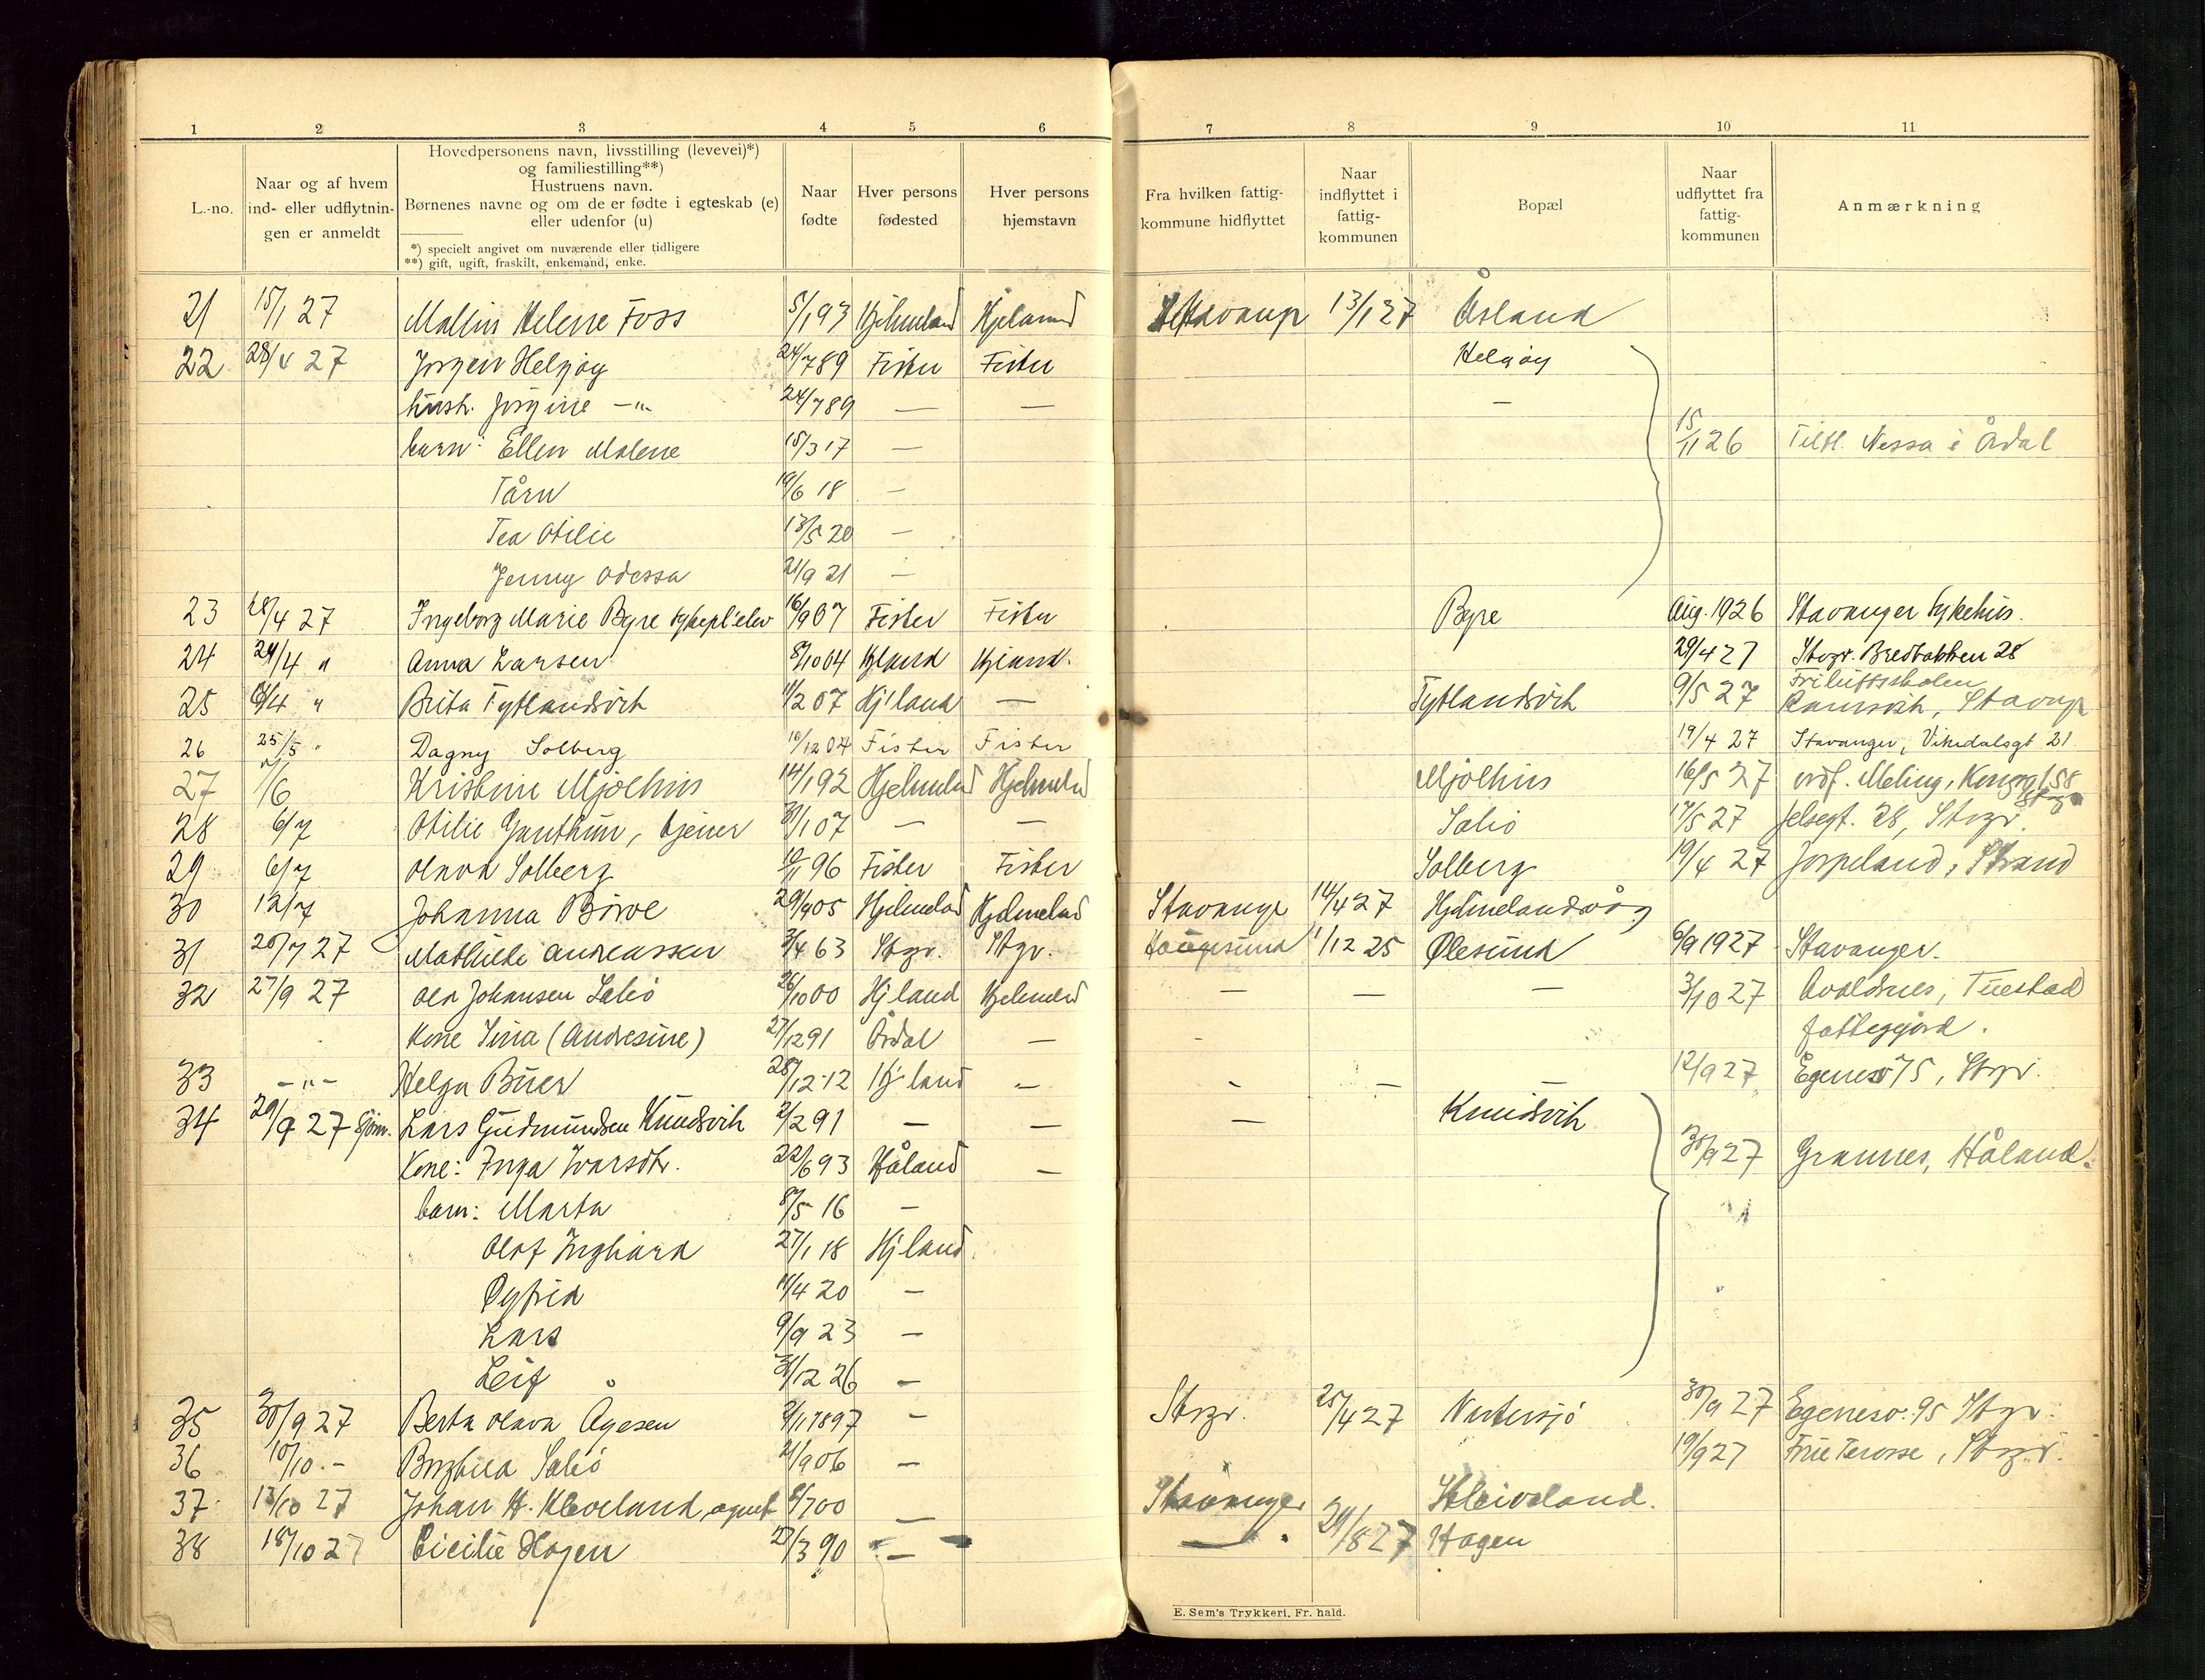 1 2 3 4 5 6 7 8 9 10 11
L.-no.
Naar og af hvem ind- eller udflytningen er anmeldt
Hovedpersonens navn, livsstilling (levevei)*)
og familiestilling**)
Hustruens navn.
Børnenes navne og om de er fødte i egteskab (e)
eller udenfor (u)
*) specielt angivet om nuværende eller tidligere
**) gift, ugift, fraskilt, enkemand, enke.
Naar fødte
Hver persons fødested
Hver persons hjemstavn
Fra hvilken fattig-
kommune hidflyttet
Naar
indflyttet i
fattig-
kommunen
Bopæl
Naar
udflyttet fra
fattig-
kommunen
Anmærkning
21 15/1 27 Malene Helene Foss 5/1 93 Hjelmeland 13/1 27 Åsland
22 28/4 27 Jørgen Helgøy 24/7 89 Fister Fister Helgøy
hustr. Jørgine —"— 24/7 89 — — —
barn: Ellen Malene 15/3 17 — 15/11 26 Tilfl. Nessa i Årdal
Tårn 19/6 18 —
Tea Otilie 13/5 20 —
Jenny Odessa 21/9 21 —
23 28/4 27 Ingeborg Marie Byre sykepl.elev 16/9 07 Fister Fister Byre Aug. 1926 Stavanger Sykehus.
24 29/4 " Anna Larsen 8/10 04 Hjland Hjland. 29/4 27 Stvgr. Bredbakken 28
25 "Brita Tytlandsvik 11/2 07 Hjland — Tytlandsvik 9/5 27 Friluftsskolen
Ramsvik, Stavgr
26 25/5 " Dagny Solberg 10/12 04 Fister Fister 19/4 27 Stavanger, Vikedalsgt 21.
27 1/6 Kristine Mjølhus 14/1 92 Hjelmeld Hjelmeld Mjølhus 16/5 27 Meling, Kongsgt. 58
Stvgr
28 6/7 Otilie Ganthun, tjener 31/1 07 — — Salio 17/5 27 Jelsegt. 28, Stvgr.
29 6/7 Olava Solberg 96 Fister Fister Solberg 19/4 27 Jørpeland, Strand
30 12/7 Johanna Børve 29/9 05 Hjelmelad Hjelmelad Stavanger 14/4 27 Hjelmelandsvåg
31 20/7 27 Mathilde Andreassen 3/4 63 Stgr. Stgr. Haugesund 1/12 25 Ølesund 6/9 1927 Stavanger.
32 27/9 27 Ola Johansen Salio 26/10 00 Hjland Hjelmeld — — — 3/10 27 Avaldsnes, Tuestad
fattiggård.
Kone Sina (Andresine) 27/12 91 Årdal —
33 —"— Helga Buer 28/12 12 Hjland — — — — 12/9 27 Egenesv 75, Stvgr.
34 29/9 27 Lars Gudmundsen Knudsvik 2/2 91 — — — Knudsvik
Kone: Inga Ivarsdtr. 22/6 93 Håland — 30/9 27 Grannes, Håland.
barn: Marta 8/5 16 —
Olaf Inghard 27/1 18 Hjland
Øyfrid 11/4 20 —
Lars 9/9 23 —
Leif 31/12 26 —
35 30/9 27 Berta Olava Ågesen 1897 — Stvgr. 25/4 27 30/9 27 Egenesv. 95 Stgr.
36 10/10 — Borghild Salio 21/9 06 — 19/9 27 Frue Terasse, Stvgr.
37 13/10 27 Johan H. Kleveland, agent 6/7 00 — Stavanger Kleiveland.
38 18/10 27 Cicilie Hagen 27/3 90 — — 29/8 27 Hagen
E. Sem's Trykkeri, Fr. hald.